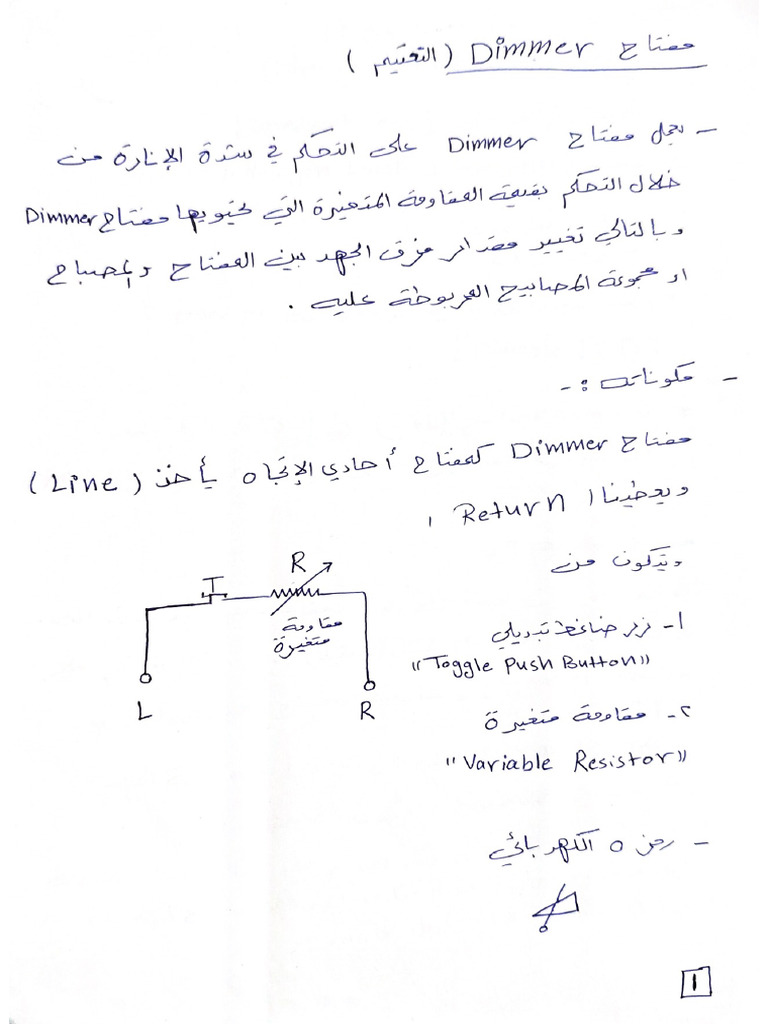 مفتاح Dimmer (التعتيم)
- يعمل مفتاح Dimmer على التحكم في شدة الإنارة من
خلال التحكم بقيمة المقاومة المتغيرة التي يحتويها مفتاح Dimmer
وبالتالي تغيير مقدار فرق الجهد بين المفتاح والمصباح
او مجموعة المصابيح المربوطة عليه .
- مكوناته :-
مفتاح Dimmer كمفتاح أحادي الإتجاه يأخذ (Line)
ويعطينا (Return)
ويتكون من
١- زر ضاغط تبديلي
"Toggle Push Button"
٢- مقاومة متغيرة
"Variable Resistor"
R
مقاومة
متغيرة
L
R
- رمزه الكهربائي
١